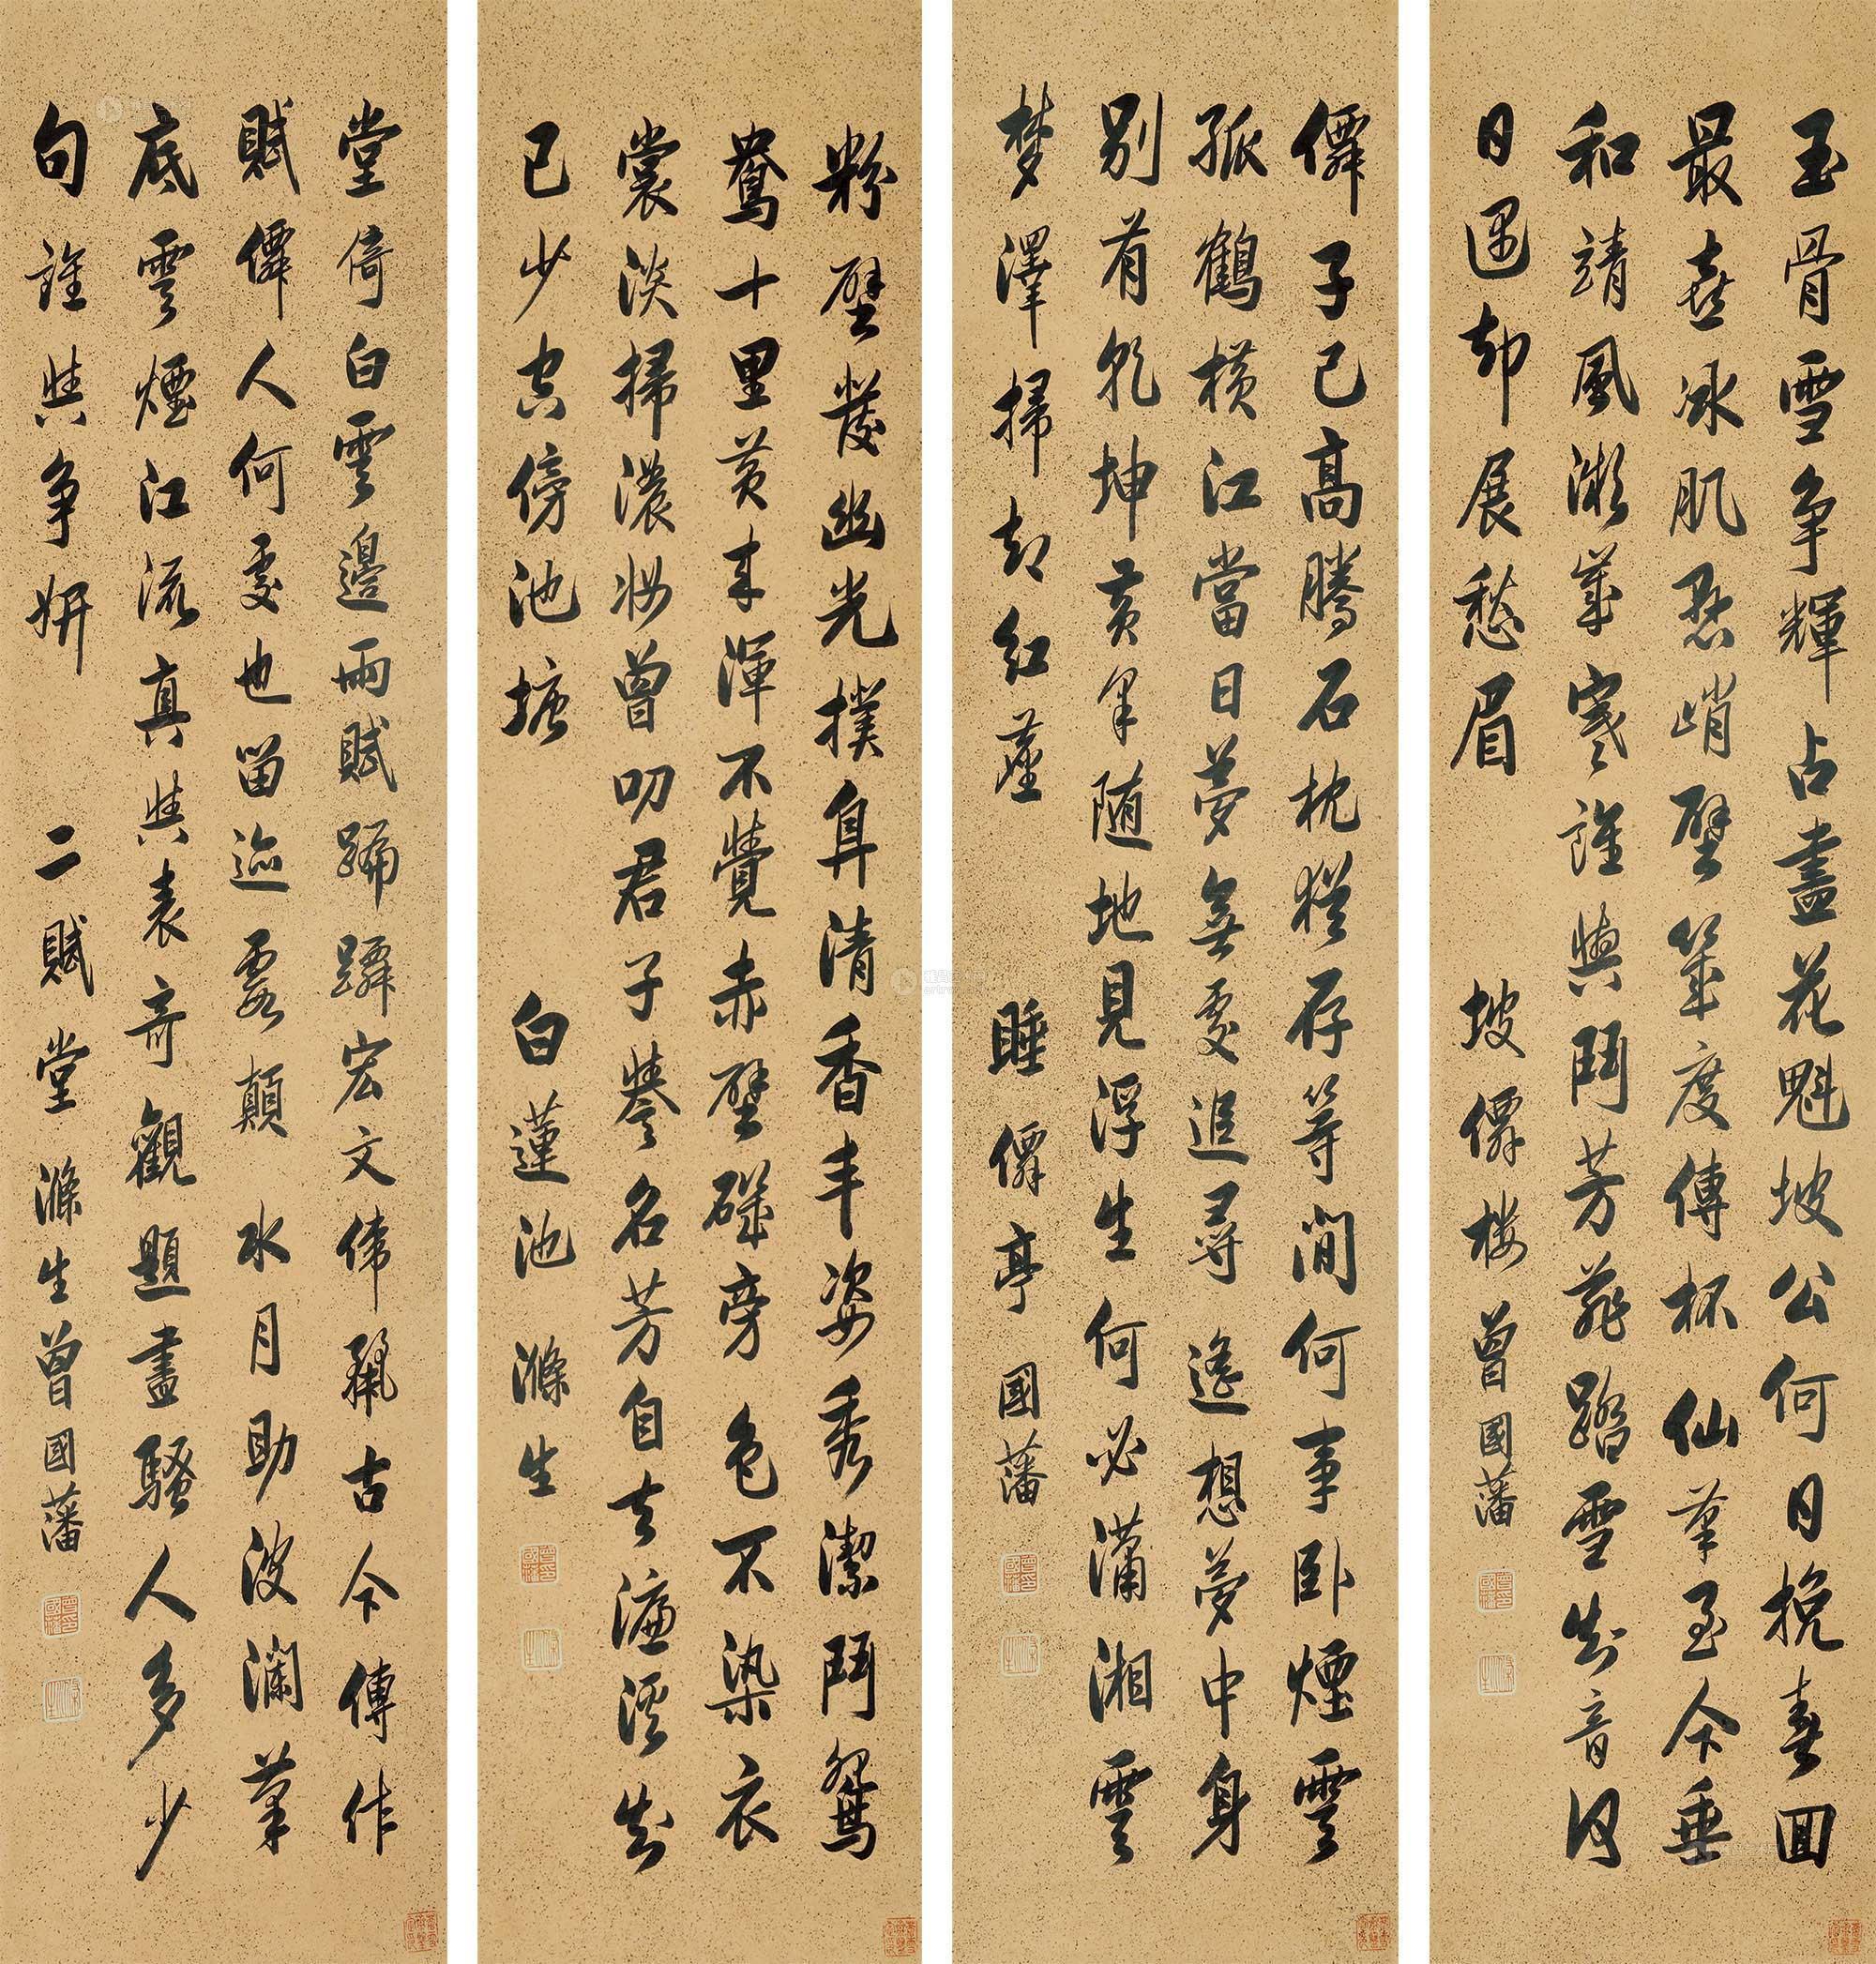 玉骨雪争輝占盡花魁坡公何日挽春回
最喜冰肌懸峭壁幾度傳杯仙筆至今垂
和靖風漪幾寒誰與鬪芳菲踏雪知音何
日遇却展愁眉 坡僊楼 曾國藩
僊子已高騰石枕猶存等閒何事卧煙雲
孤鶴横江當日夢無處追尋遙想夢中身
别有乾坤黄粱随地見浮生何必瀟湘雲
梦澤掃却紅塵 睡僊亭 國藩
粉壁發幽光撲鼻清香丰姿秀潔鬪鴛
鴦十里黄来渾不覺赤壁磯旁色不染衣
裳淡掃濃妝曾叨君子譽名芳自去濂溪知
已少空傍池塘 白蓮池 滌生
堂倚白雲邊兩賦蹁躚宏文偉麗古今傳作
賦僊人何處也留迹雲顛 水月助波瀾筆
底雲煙江流真與表奇觀題盡騷人多少
句誰與争妍 二賦堂 滌生曾國藩